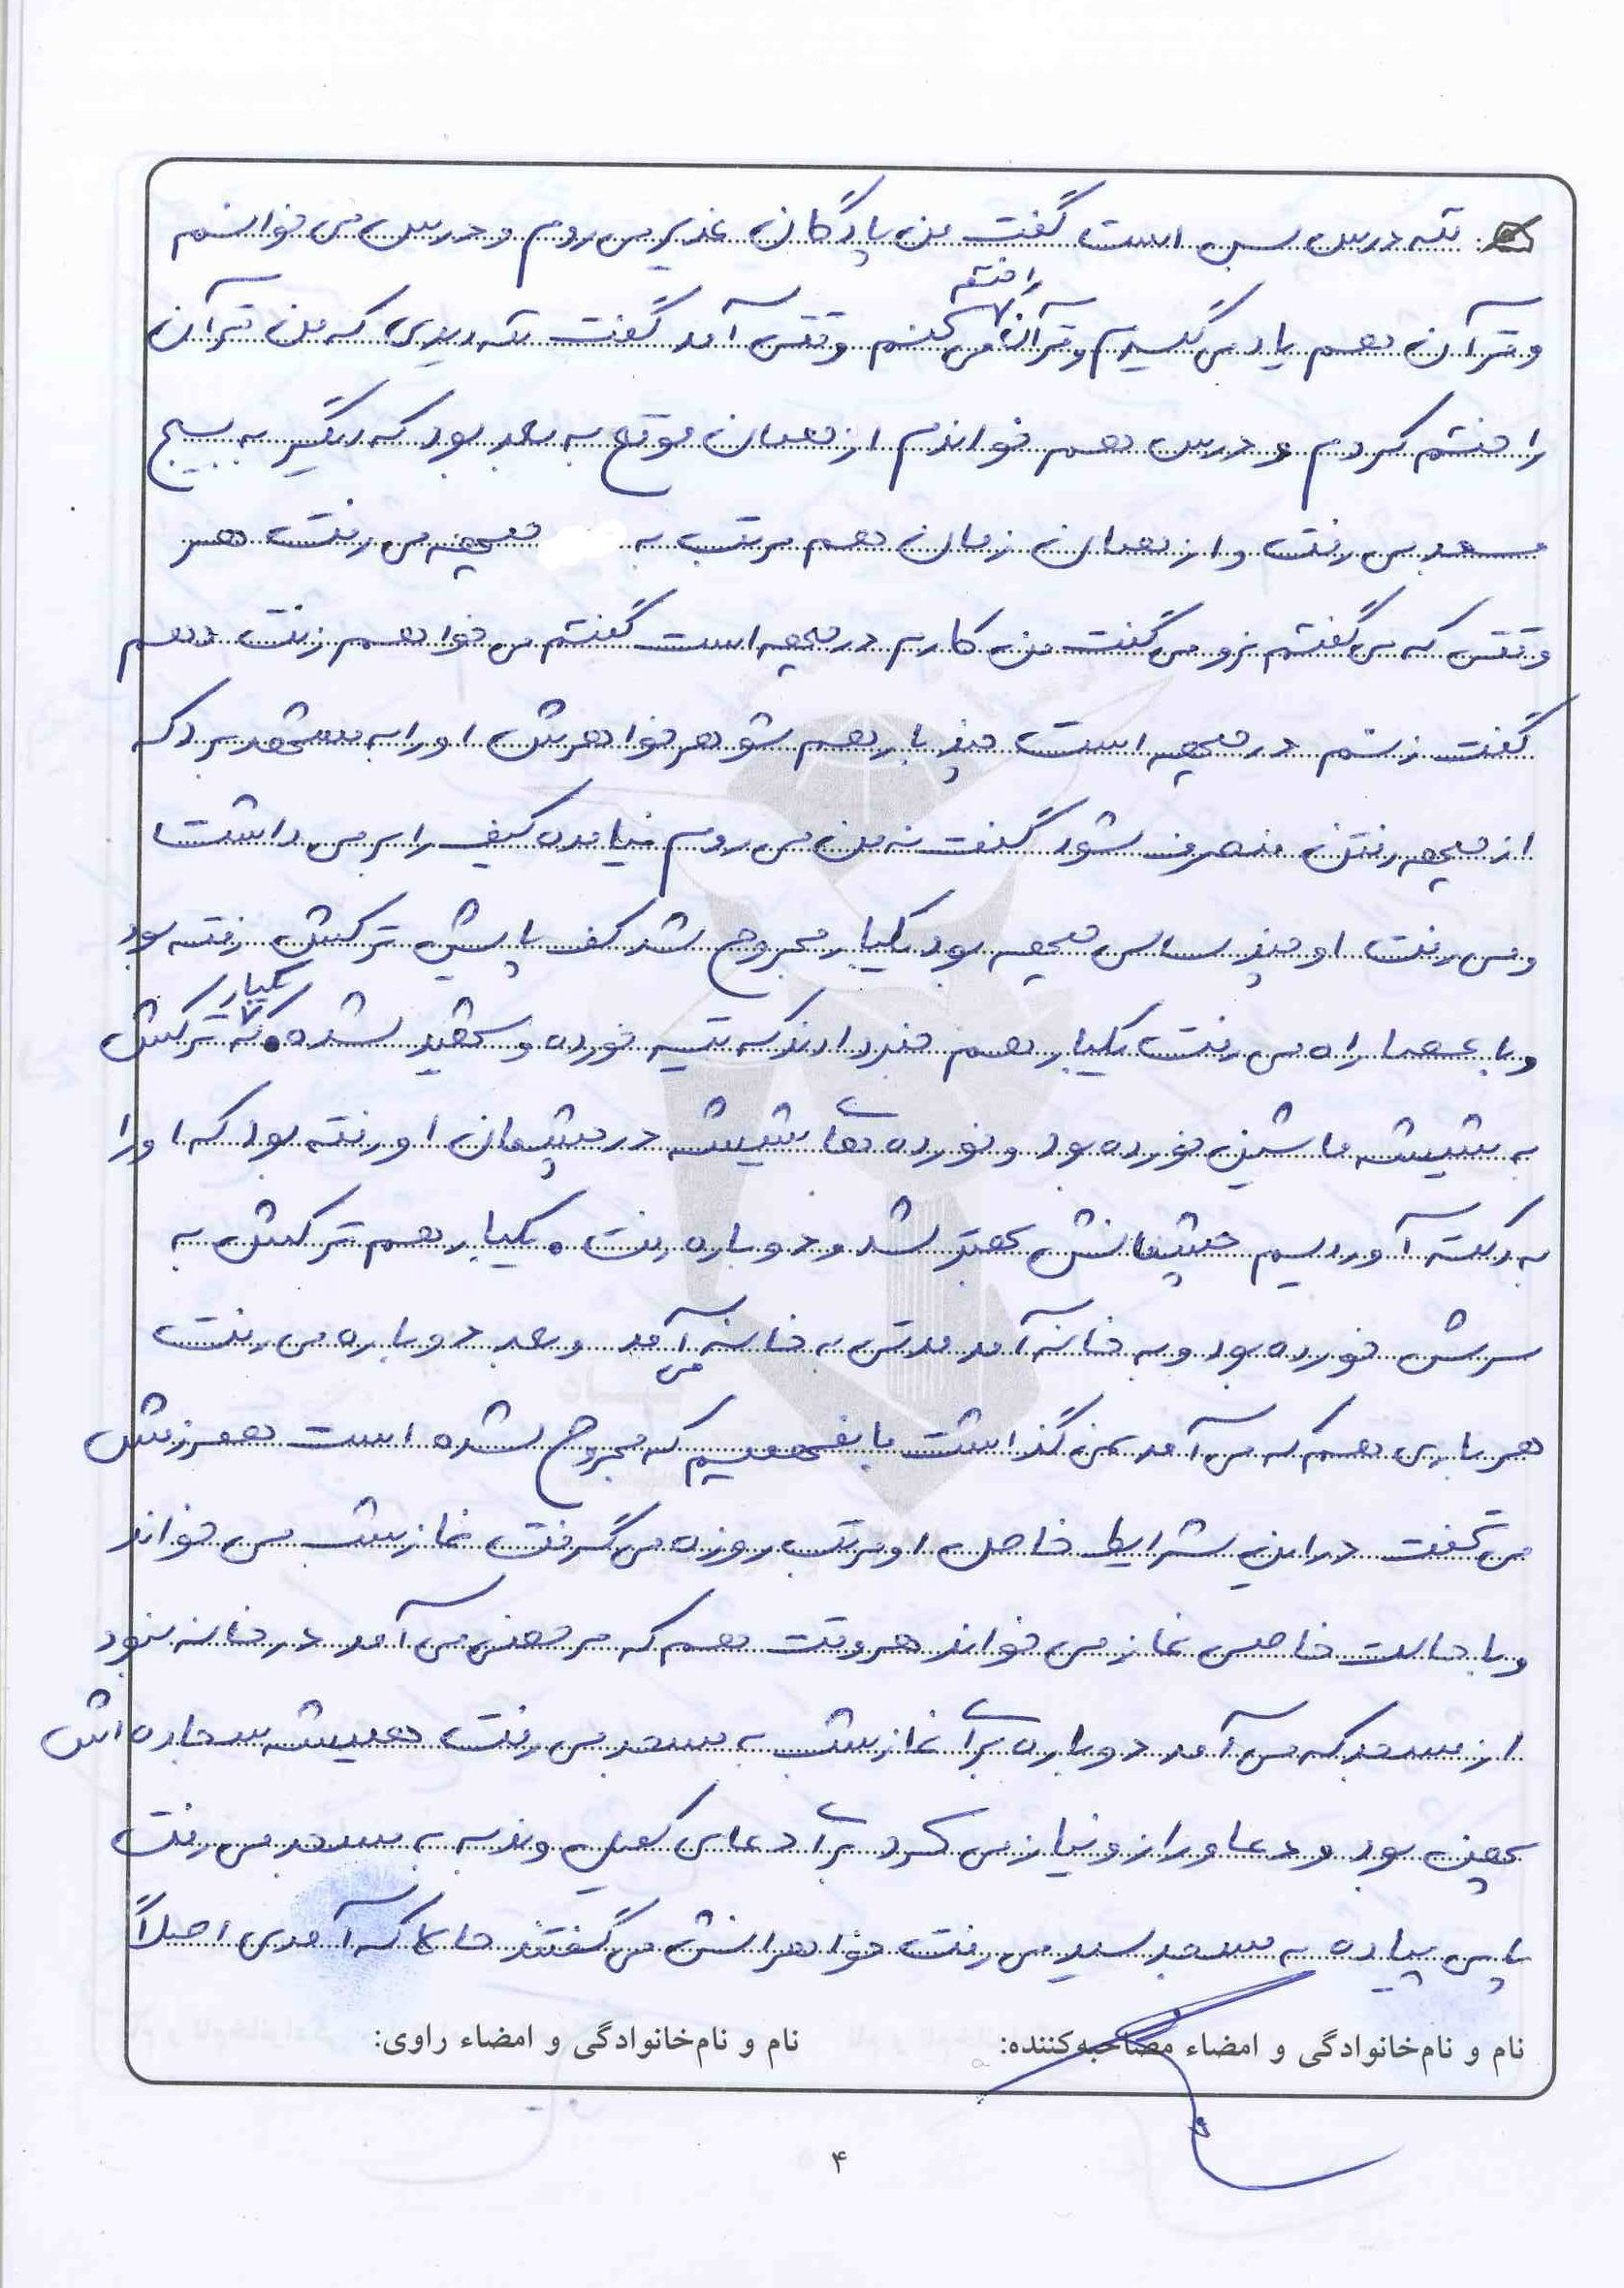 ننه درس بس است گفت من پادگان غدیر می روم و درس می خوانم
و قرآن هم یاد می گیرم و قرآن را ختم می کنم وقتی آمد گفت ننه دیدی که من قرآن
را ختم کردم و درس هم خواندم از همان موقع به بعد بود که دیگر به بسیج
مسجد می رفت و از همان زمان هم مرتب به جبهه می رفت هر
وقتی که می گفتم نرو می گفت من کارم در جبهه است گفتم می خواهم زنت دهم
گفت زنم در جبهه است چند بار هم شوهر خواهرش او را به مشهد برد که
از جبهه رفتن منصرف شود گفت نه من می روم نیامده کیف را بر می داشت
و می رفت او چند سالی جبهه بود یکبار مجروح شد کف پایش ترکش رفته بود
و با عصا راه می رفت یکبار هم خبر دادند که تیر خورده و شهید شده یکبار که ترکش
به شیشه ماشین خورده بود و خورده های شیشه در چشمان او رفته بود که او را
به رشت آوردیم چشمانش بهتر شد و دوباره رفت. یکبار هم ترکش به
سرش خورده بود و به خانه آمد مدتی به خانه می آمد و بعد دوباره می رفت
هر باری هم که می آمد نمی گذاشت ما بفهمیم که مجروح شده است همرزمش
می گفت در این شرایط خاص او مرتب روزه می گرفت نماز شب می خواند
و با حالت خاصی نماز می خواند هر وقت هم که مرخصی می آمد در خانه نبود
از مسجد که می آمد دوباره برای نماز شب به مسجد می رفت همیشه سجاده اش
پهن بود و دعا و راز و نیاز می کرد برای دعای کمیل و ندبه به مسجد می رفت
پای پیاده به مسجد سید می رفت خواهرانش می گفتند حالا که آمدی اصلاً
نام و نام‌خانوادگی و امضاء مصاحبه‌کننده: نام و نام‌خانوادگی و امضاء راوی:
۴